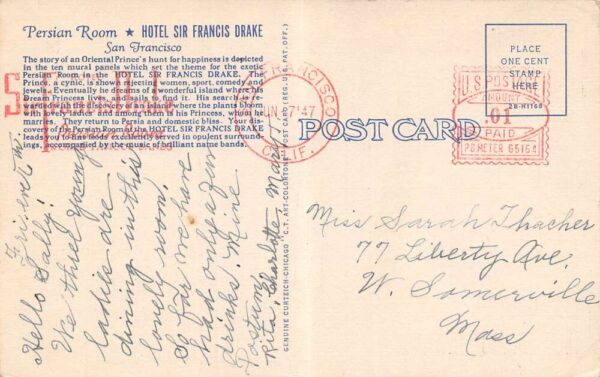 Persian Room ★ HOTEL SIR FRANCIS DRAKE
San Francisco
The story of an Oriental Prince's hunt for happiness is depicted
in the ten mural panels which set the theme for the exotic
Persian Room in the HOTEL SIR FRANCIS DRAKE. The
Prince, a cynic, is shown rejecting women, sport, comedy and
jewels. Eventually he dreams of a wonderful island where his
Dream Princess lives, and sails to find it. His search is re-
warded with the discovery of an island where the plants bloom
with lovely ladies and among them is his Princess, whom he
marries. They return to Persia and domestic bliss. Your dis-
covery of the Persian Room of the HOTEL SIR FRANCIS DRAKE
leads you to fine food excellently served in opulent surround-
ings, accompanied by the music of brilliant name bands.
Hello Sally!
We three young
ladies are
dining in this
lovely room.
So far we have
had only a gin
drinks! Mine
Postum
Rita, Charlotte, Mary
GENUINE CURTEICH-CHICAGO "C.T. ART-COLORTONE" POST CARD (REG. U.S. PAT. OFF.)
FRANCISCO
27 '47
CALIF.
POST CARD
PLACE
ONE CENT
STAMP
HERE
2B-H1160
U.S. POSTAGE
AMOUNT
.01
PAID
P.B. METER 65164
Miss Sarah Thacher
77 Liberty Ave.
W. Somerville
Mass